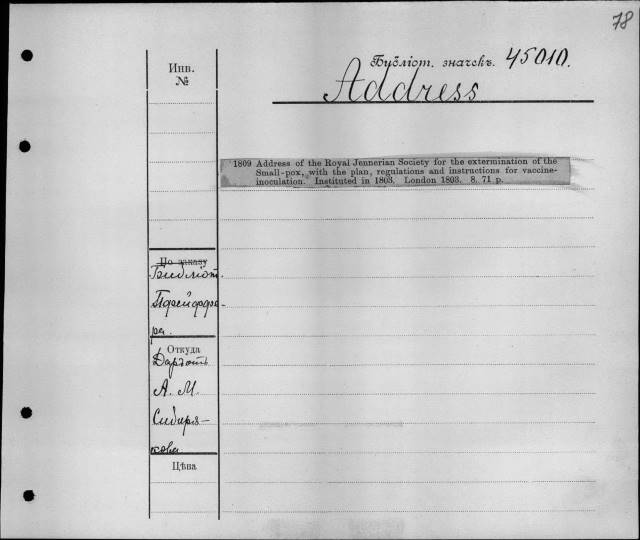 78
Инв.
№
Библіот. значекъ. 45010.
Address
1809 Address of the Royal Jennerian Society for the extermination of the
Small-pox, with the plan, regulations and instructions for vaccine-
inoculation. Instituted in 1803. London 1803. 8. 71 p.
По заказу
Библіот.
Пфейффе-
ра.
Откуда
Даръ отъ
А. М.
Сибиря-
кова
Цѣна